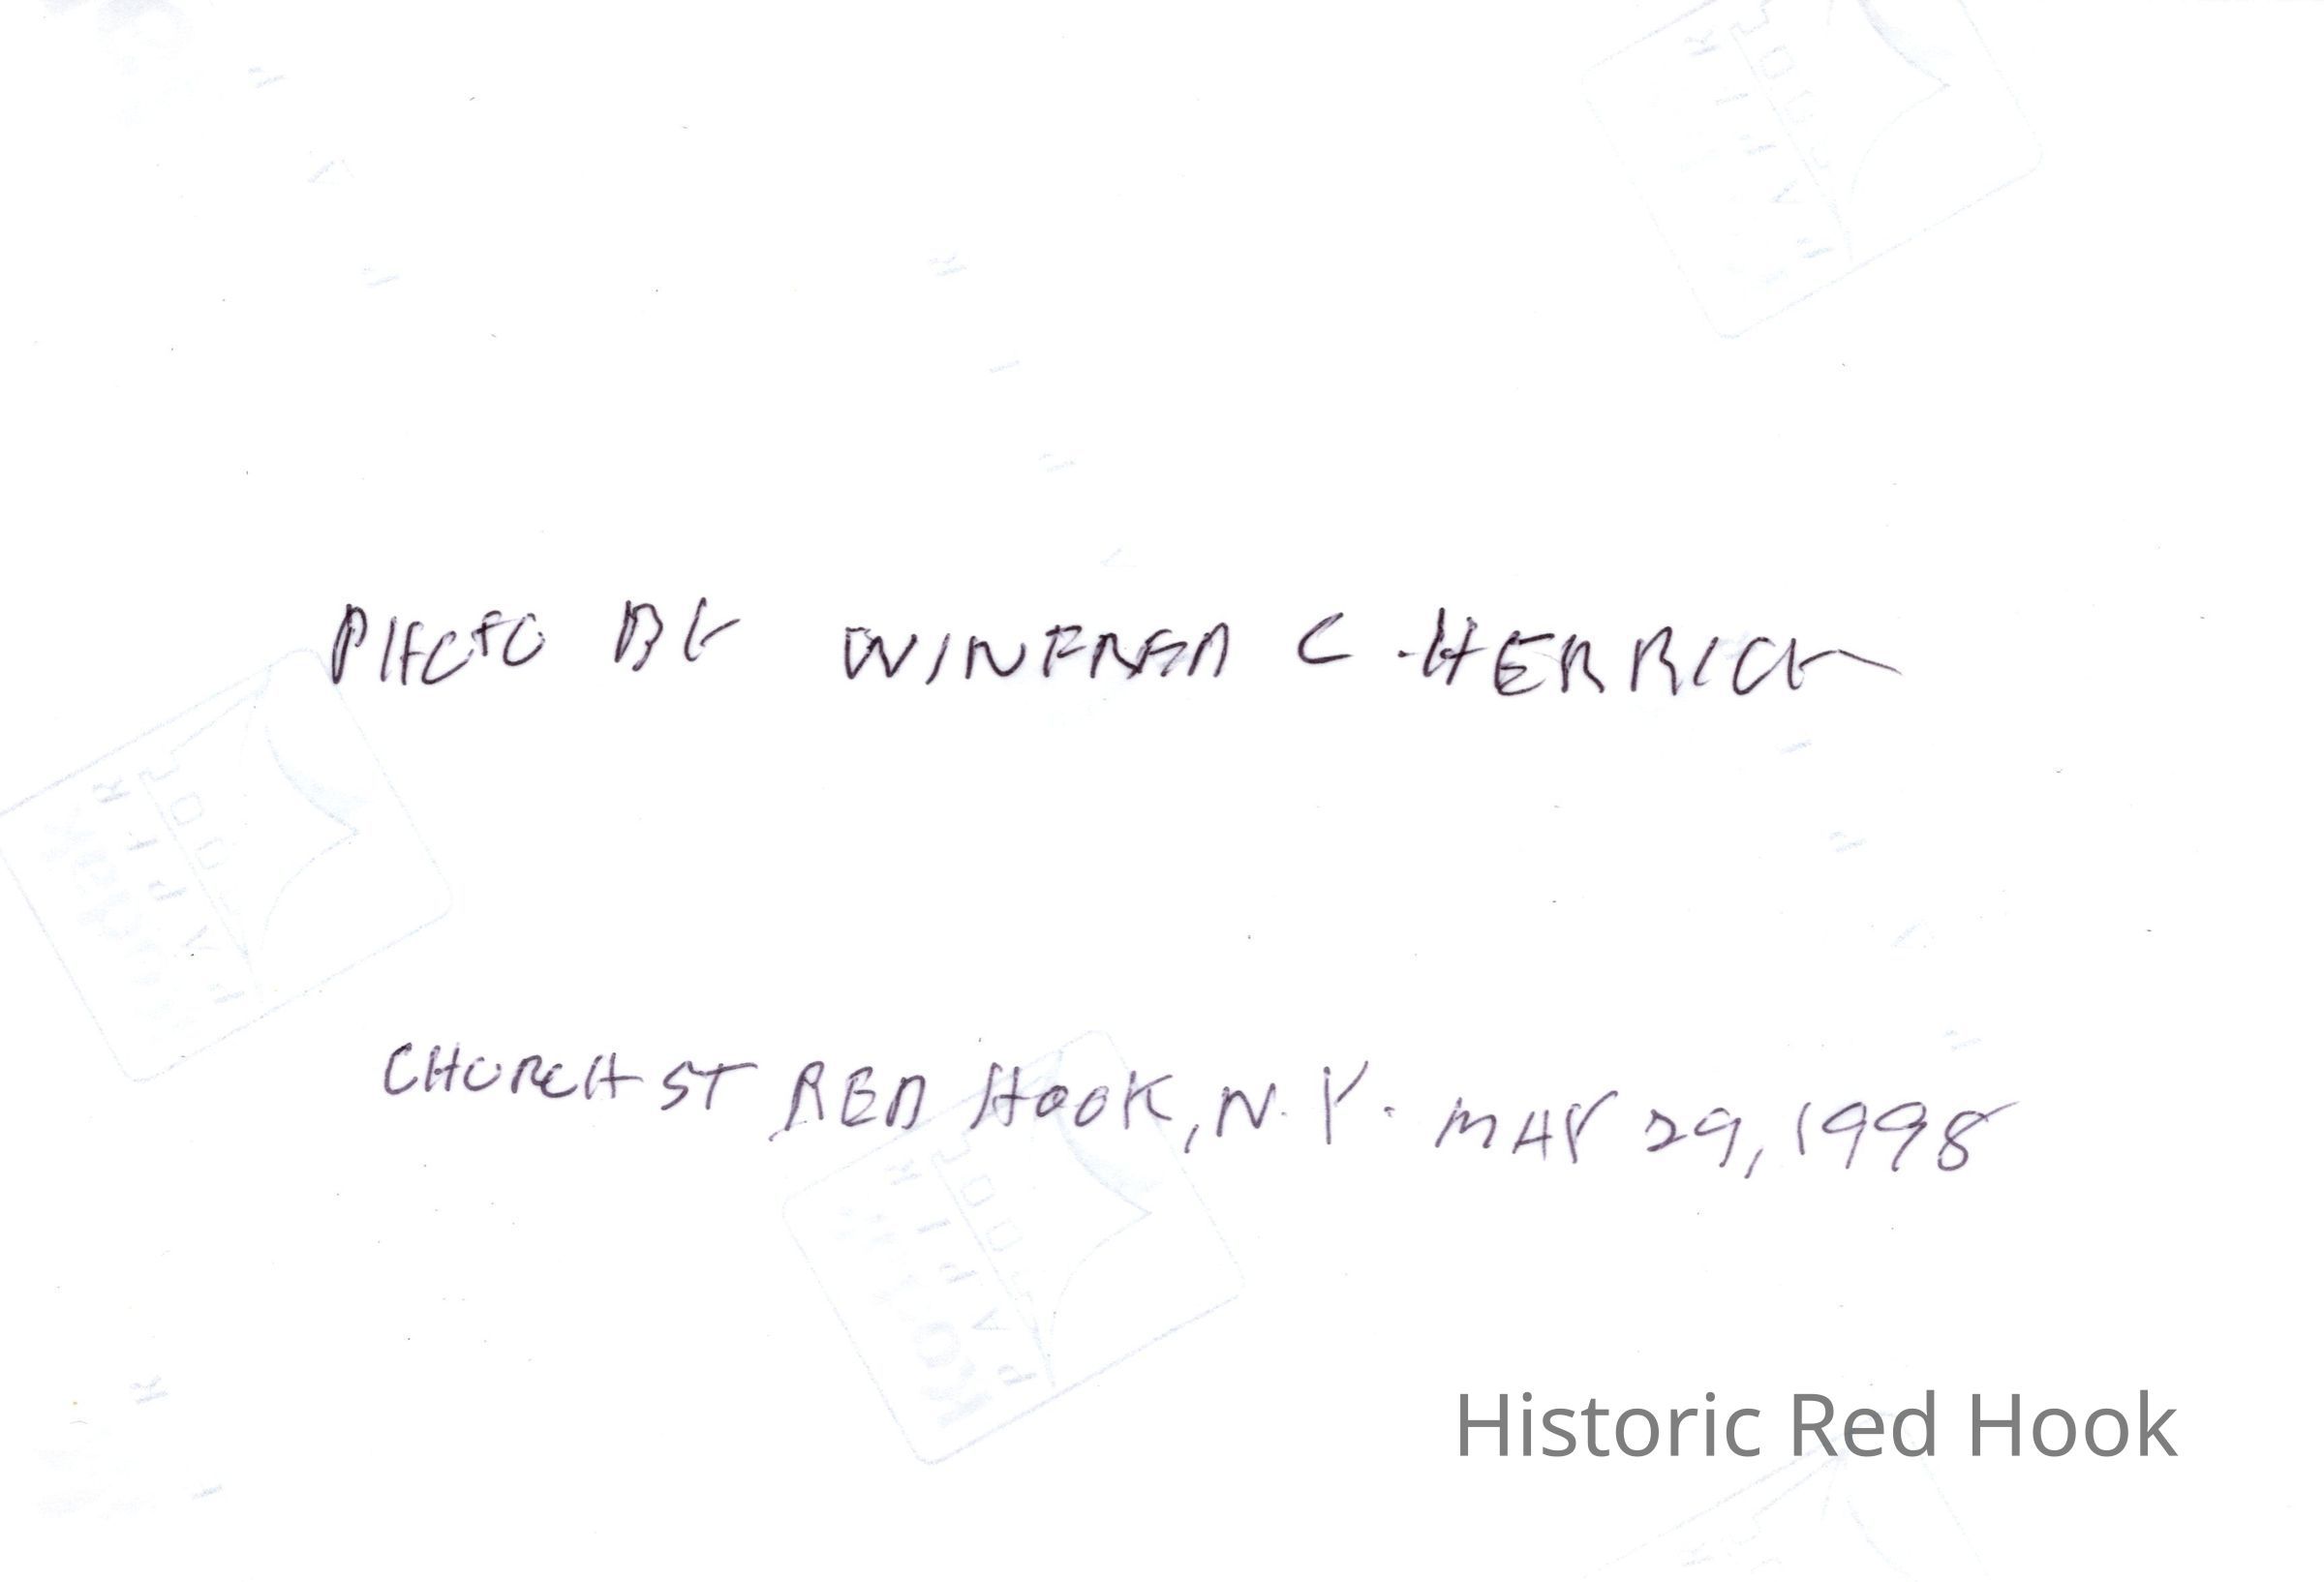 PHOTO BY WINFRED C. HERRICK
CHURCH ST RED HOOK, N.Y. MAY 29, 1998
Historic Red Hook